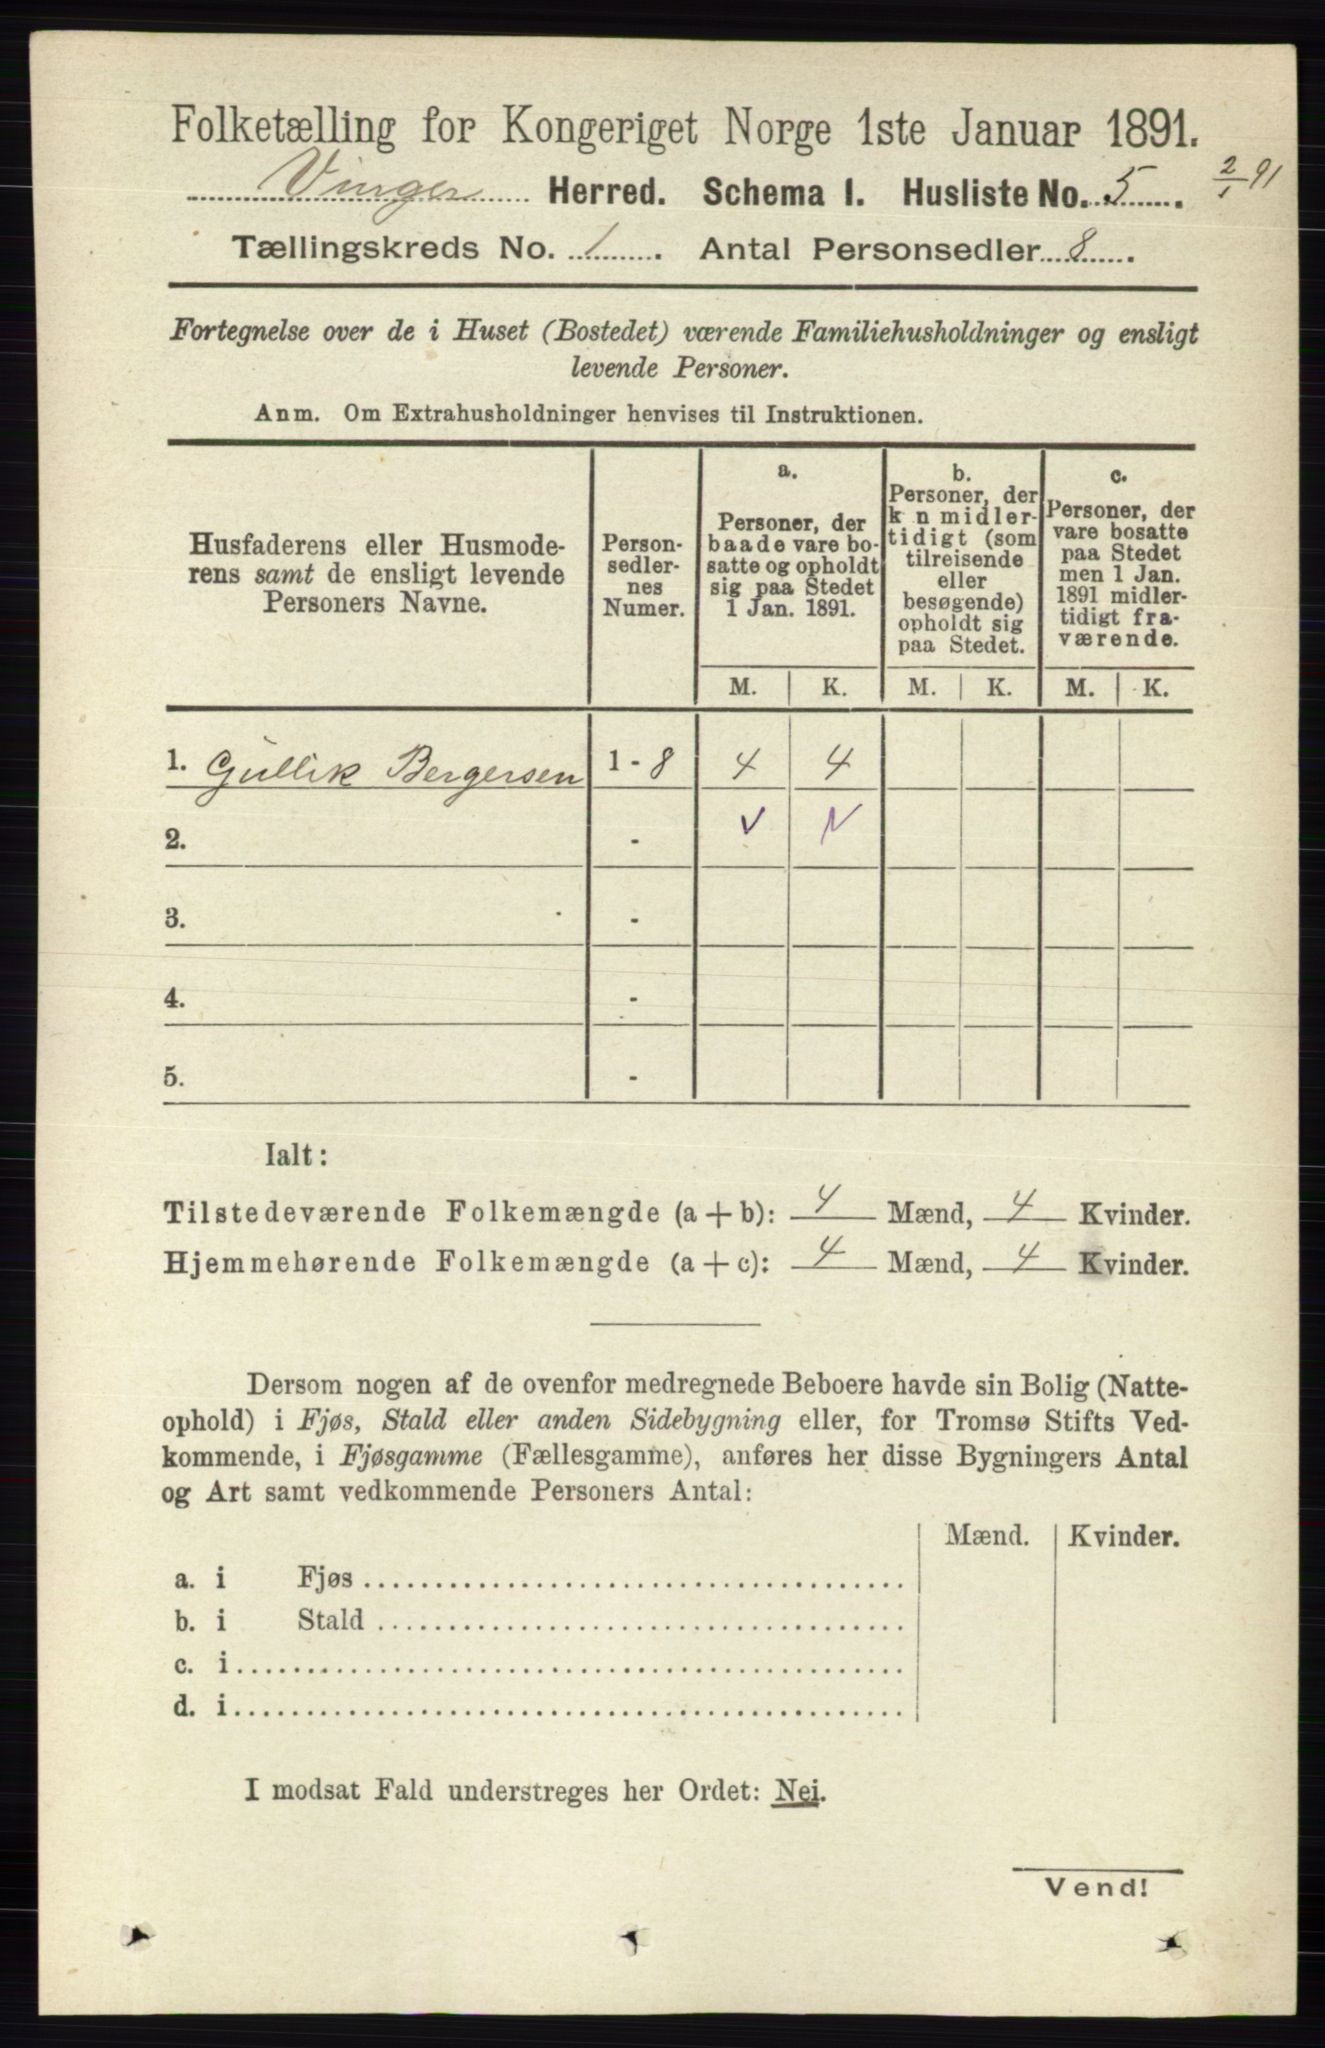 Folketælling for Kongeriget Norge 1ste Januar 1891.
Vinger Herred. Schema 1. Husliste No. 5 2/1 91
Tællingskreds No. 1. Antal Personsedler 8.
Fortegnelse over de i Huset (Bostedet) værende Familiehusholdninger og ensligt
levende Personer.
Anm. Om Extrahusholdninger henvises til Instruktionen.
Husfaderens eller Husmode-
rens samt de ensligt levende
Personers Navne.
Person-
sedler-
nes
Numer.
a.
Personer, der
baade vare bo-
satte og opholdt
sig paa Stedet
1 Jan. 1891.
b.
Personer, der
k n midler-
tidigt (som
tilreisende
eller
besøgende)
opholdt sig
paa Stedet.
c.
Personer, der
vare bosatte
paa Stedet
men 1 Jan.
1891 midler-
tidigt fra-
værende.
M. K. M. K. M. K.
1. Gullik Bergersen 1 - 8 4 4
2. -
3. -
4. -
5. -
Ialt:
Tilstedeværende Folkemængde (a + b): 4 Mænd, 4 Kvinder.
Hjemmehørende Folkemængde (a + c): 4 Mænd, 4 Kvinder.
Dersom nogen af de ovenfor medregnede Beboere havde sin Bolig (Natte-
ophold) i Fjøs, Stald eller anden Sidebygning eller, for Tromsø Stifts Ved-
kommende, i Fjøsgamme (Fællesgamme), anføres her disse Bygningers Antal
og Art samt vedkommende Personers Antal:
Mænd. Kvinder.
a. i Fjøs
b. i Stald
c. i
d. i
I modsat Fald understreges her Ordet: Nei.
Vend!